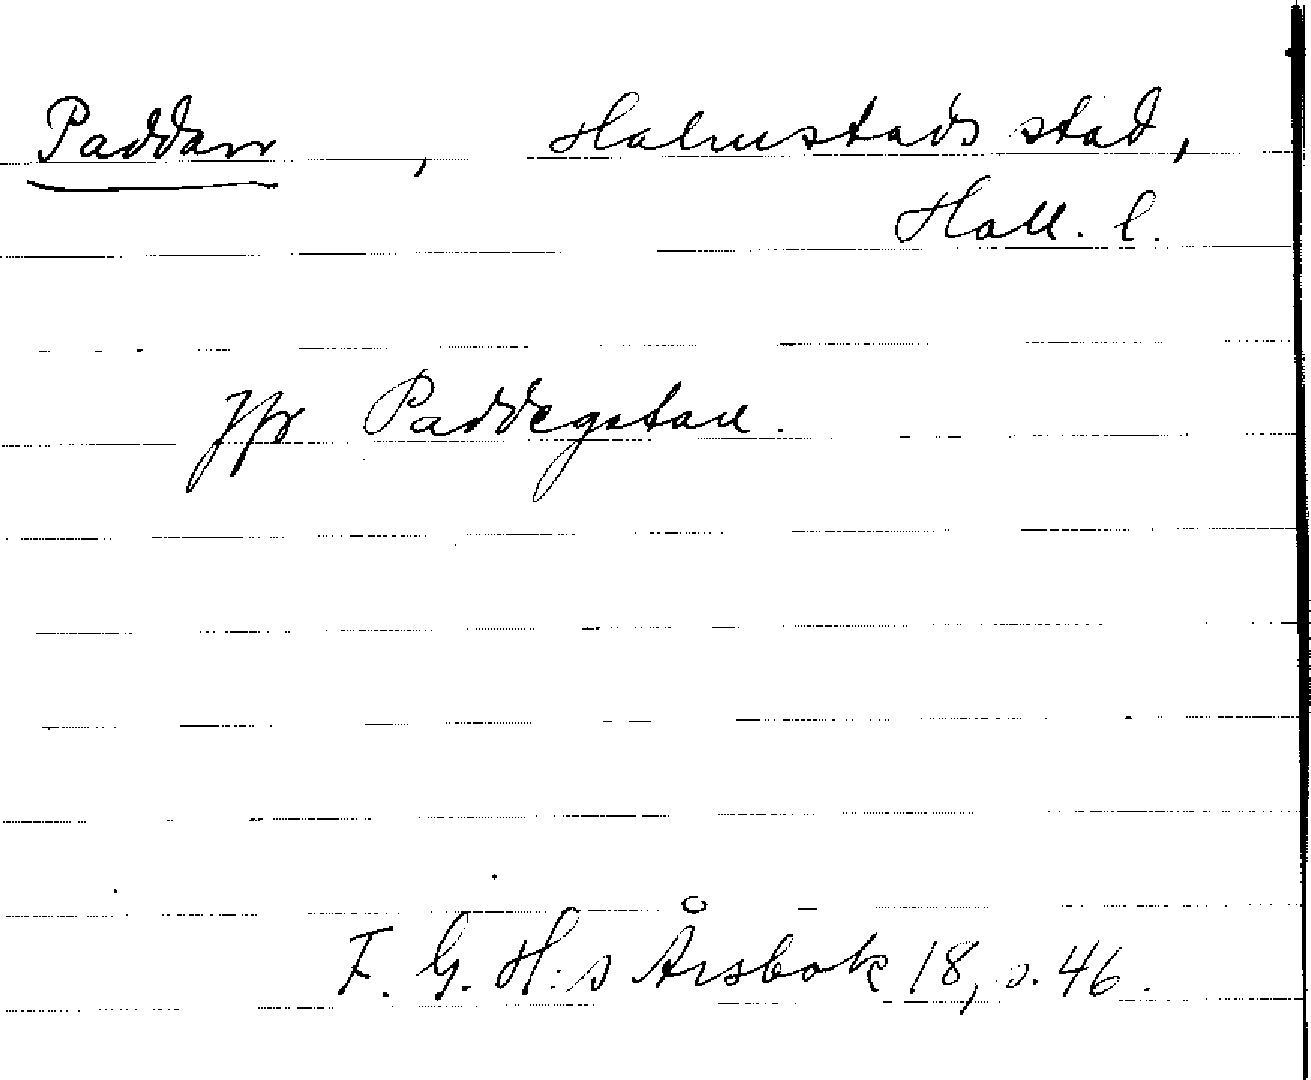 Paddan, Halmstads stad,
Hall. l.
Jfr Paddegatan.
F. G. H:s Årsbok 18, s. 46.